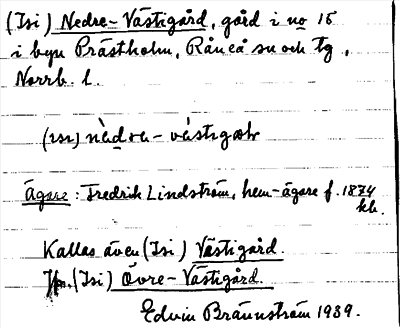 (Isi) Nedre-Västigård, gård i no 15
i byn Prästholm, Råneå sn och tg,
Norrb. l.
(ısı) nèdɐ- västıgɑɐ
Ägare: Fredrik Lindström, hem-ägare f. 1874
kb.
Kallas även (Isi) Västigård.
Jfr. (Isi) Övre-Västigård.
Edvin Brännström 1939.